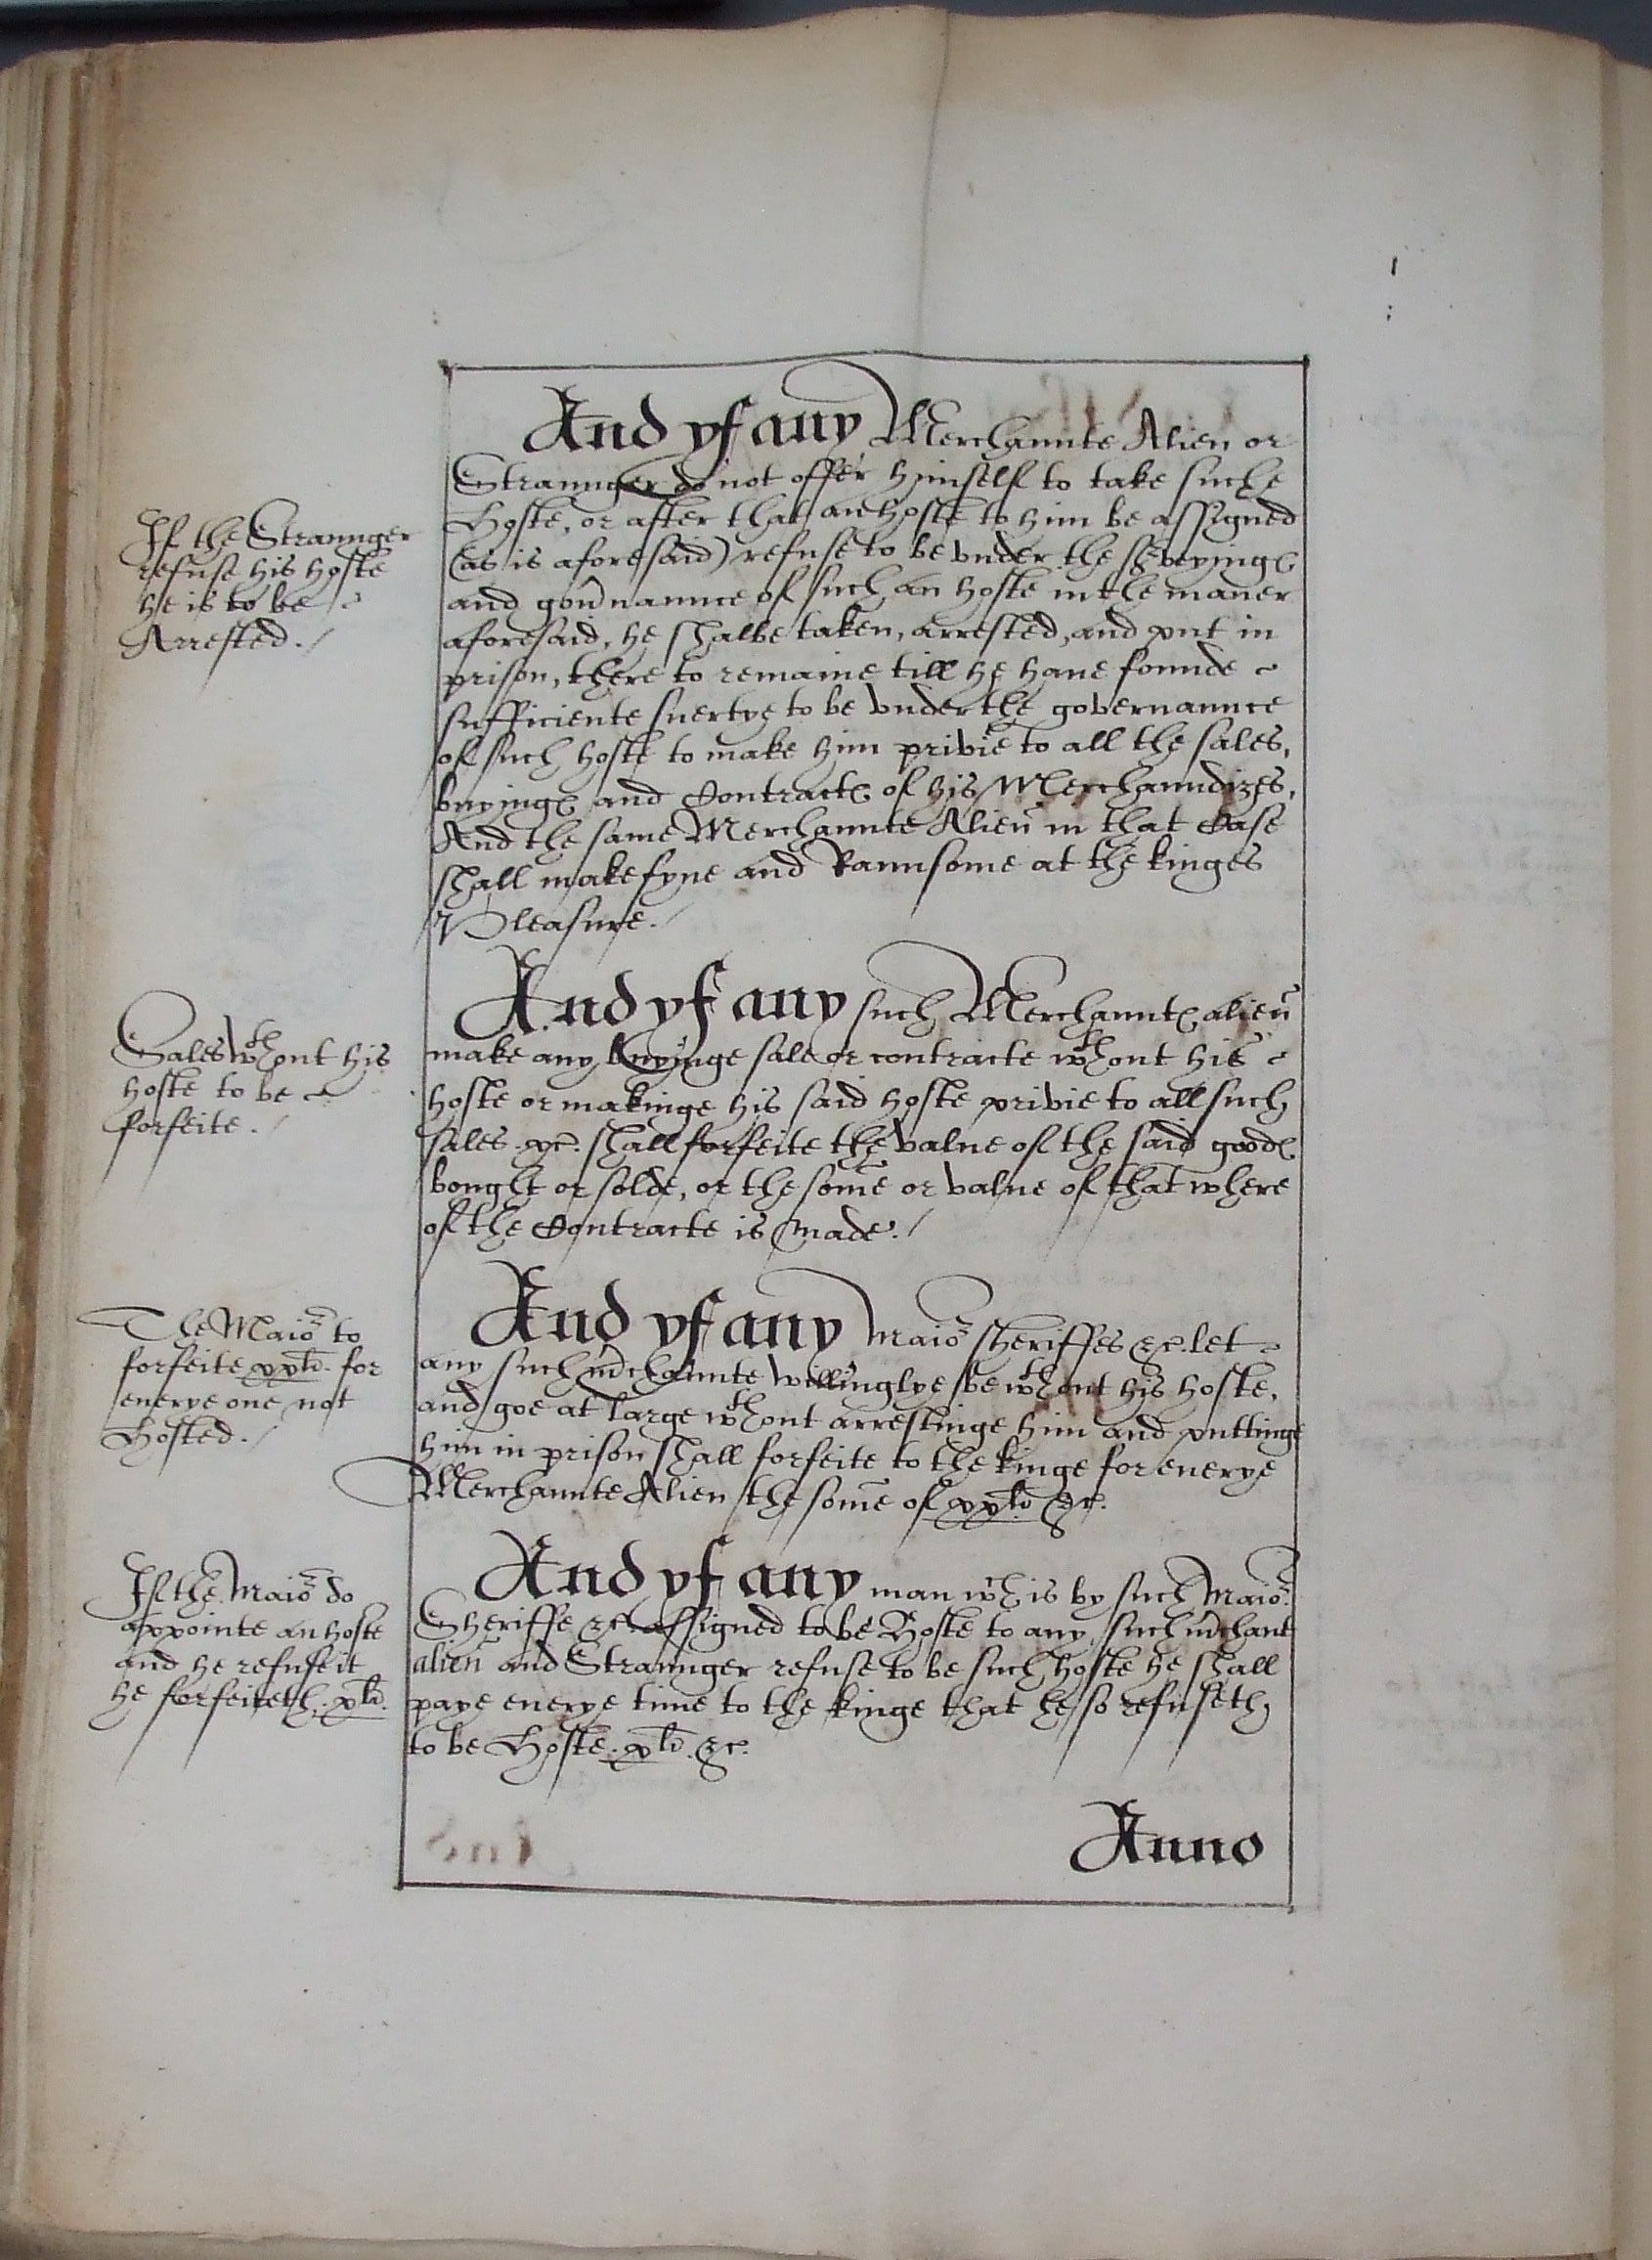 And yf any Merchaunte Alien or
Straunger do not offer himself to take suche
Hoste, or after that an hoste to him be assigned
(as is aforesaid) refuse to be vnder the
and gou'naunce of such an hoste in the maner
aforesaid, he shalbe taken, arrested, and put in
prison, there to remaine till he haue founde
sufficiente suertye to be vnder the governaunce
of such hoste to make him privie to all the sales,
buyinges and Contractes of his Merchaundizes,
And the same Merchaunte Alien in that Case
shall make fyne and Raunsome at the kinges
Pleasure./
If the Straunger
refuse his hoste
he is to be
Arrested./
And yf any such Merchauntes alien
make any buyinge sale or contracte wthout his
hoste or makinge his said hoste privie to all such
sales &c. shall forfeite the value of the said goodes
bought or solde, or the some or value of that where
of the Contracte is made./
Sales wthout his
hoste to be
forfeite./
And yf any Maior sheriffes &c. let
any such m'chaunte willinglye be wthout his hoste,
and goe at large wthout arrestinge him and puttinge
him in prison shall forfeite to the kinge for euerye
Merchaunte Alien the some of xxli. &c.
The Maior to
forfeite xxli. for
euerye one not
Hosted./
And yf any man wch is by such Maior
Sheriffe &c. assigned to be Hoste to any such m'chant
alien and Straunger refuse to be such hoste he shall
paye euerye time to the kinge that he so refuseth
to be Hoste. xli. &c.
If the Maior do
appointe an hoste
and he refuse it
he forfeiteth. xli.
Anno